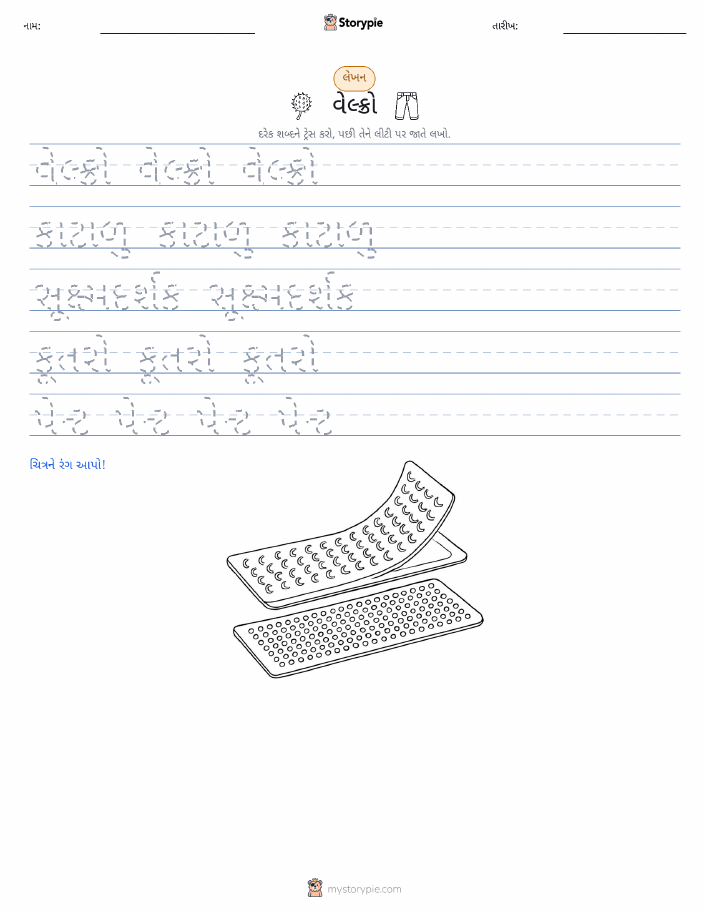 નામ: Storypie તારીખ:
લેખન
વેલ્ક્રો
દરેક શબ્દને ટ્રેસ કરો, પછી તેને લીટી પર જાતે લખો.
વેલ્ક્રો વેલ્ક્રો વેલ્ક્રો
કાટાળુ કાટાળુ કાટાળુ
સૂક્ષ્મદર્શક સૂક્ષ્મદર્શક
કૂતરો કૂતરો કૂતરો
પેન્ટ પેન્ટ પેન્ટ પેન્ટ
ચિત્રને રંગ આપો!
mystorypie.com